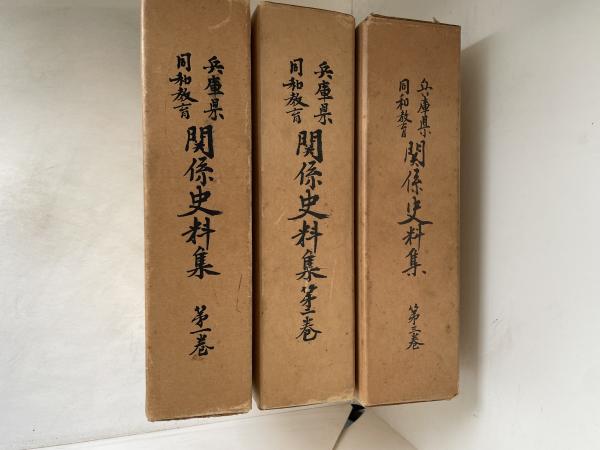 兵庫県
同和教育
関係史料集
第一巻
兵庫県
同和教育
関係史料集
第二巻
兵庫県
同和教育
関係史料集
第三巻